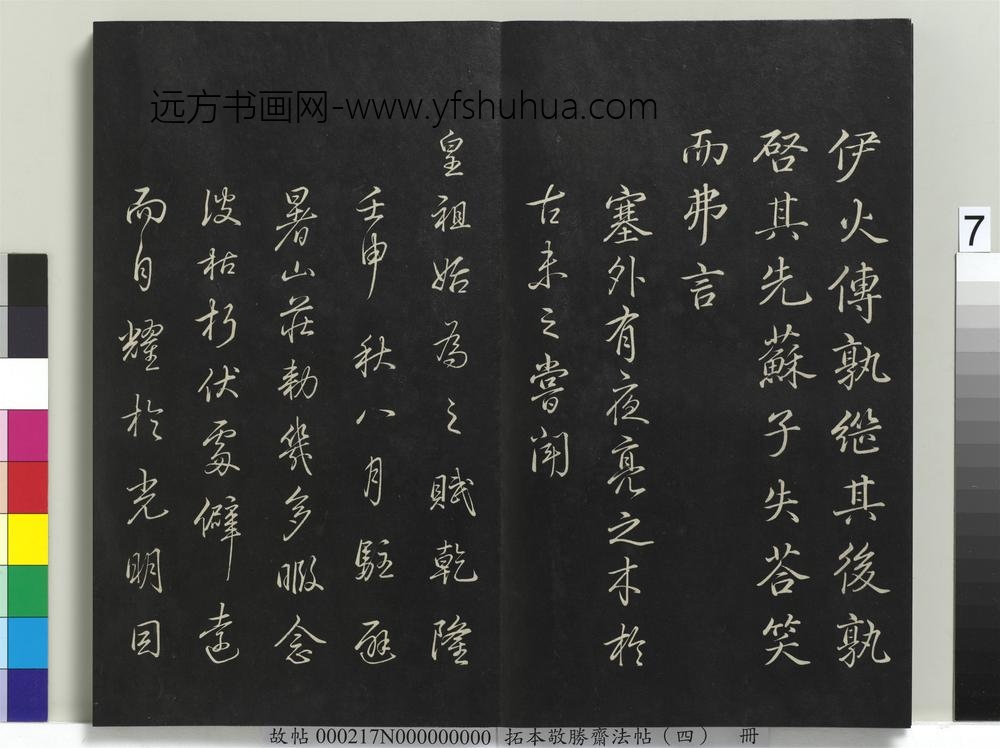 远方书画网-www.yfshuhua.com
伊火傳孰繼其後孰
啓其先蘇子失荅笑
而弗言
塞外有夜亮之木於
古未之嘗聞
皇祖始為之賦乾隆
壬申秋八月駐避
暑山莊勅幾多暇念
彼枯朽伏處僻遠
而自耀於光明因
7
故帖 000217N000000000 拓本敬勝齋法帖（四） 冊